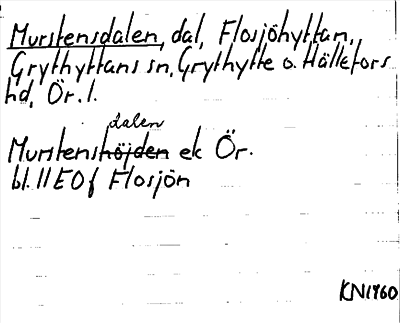 Murstensdalen, dal, Flosjöhyttan,
Grythyttans sn, Grythytte o. Hällefors
hd, Ör. l.
dalen
Murstenshöjden ek Ör.
bl. 11E0f Flosjön
KN1960